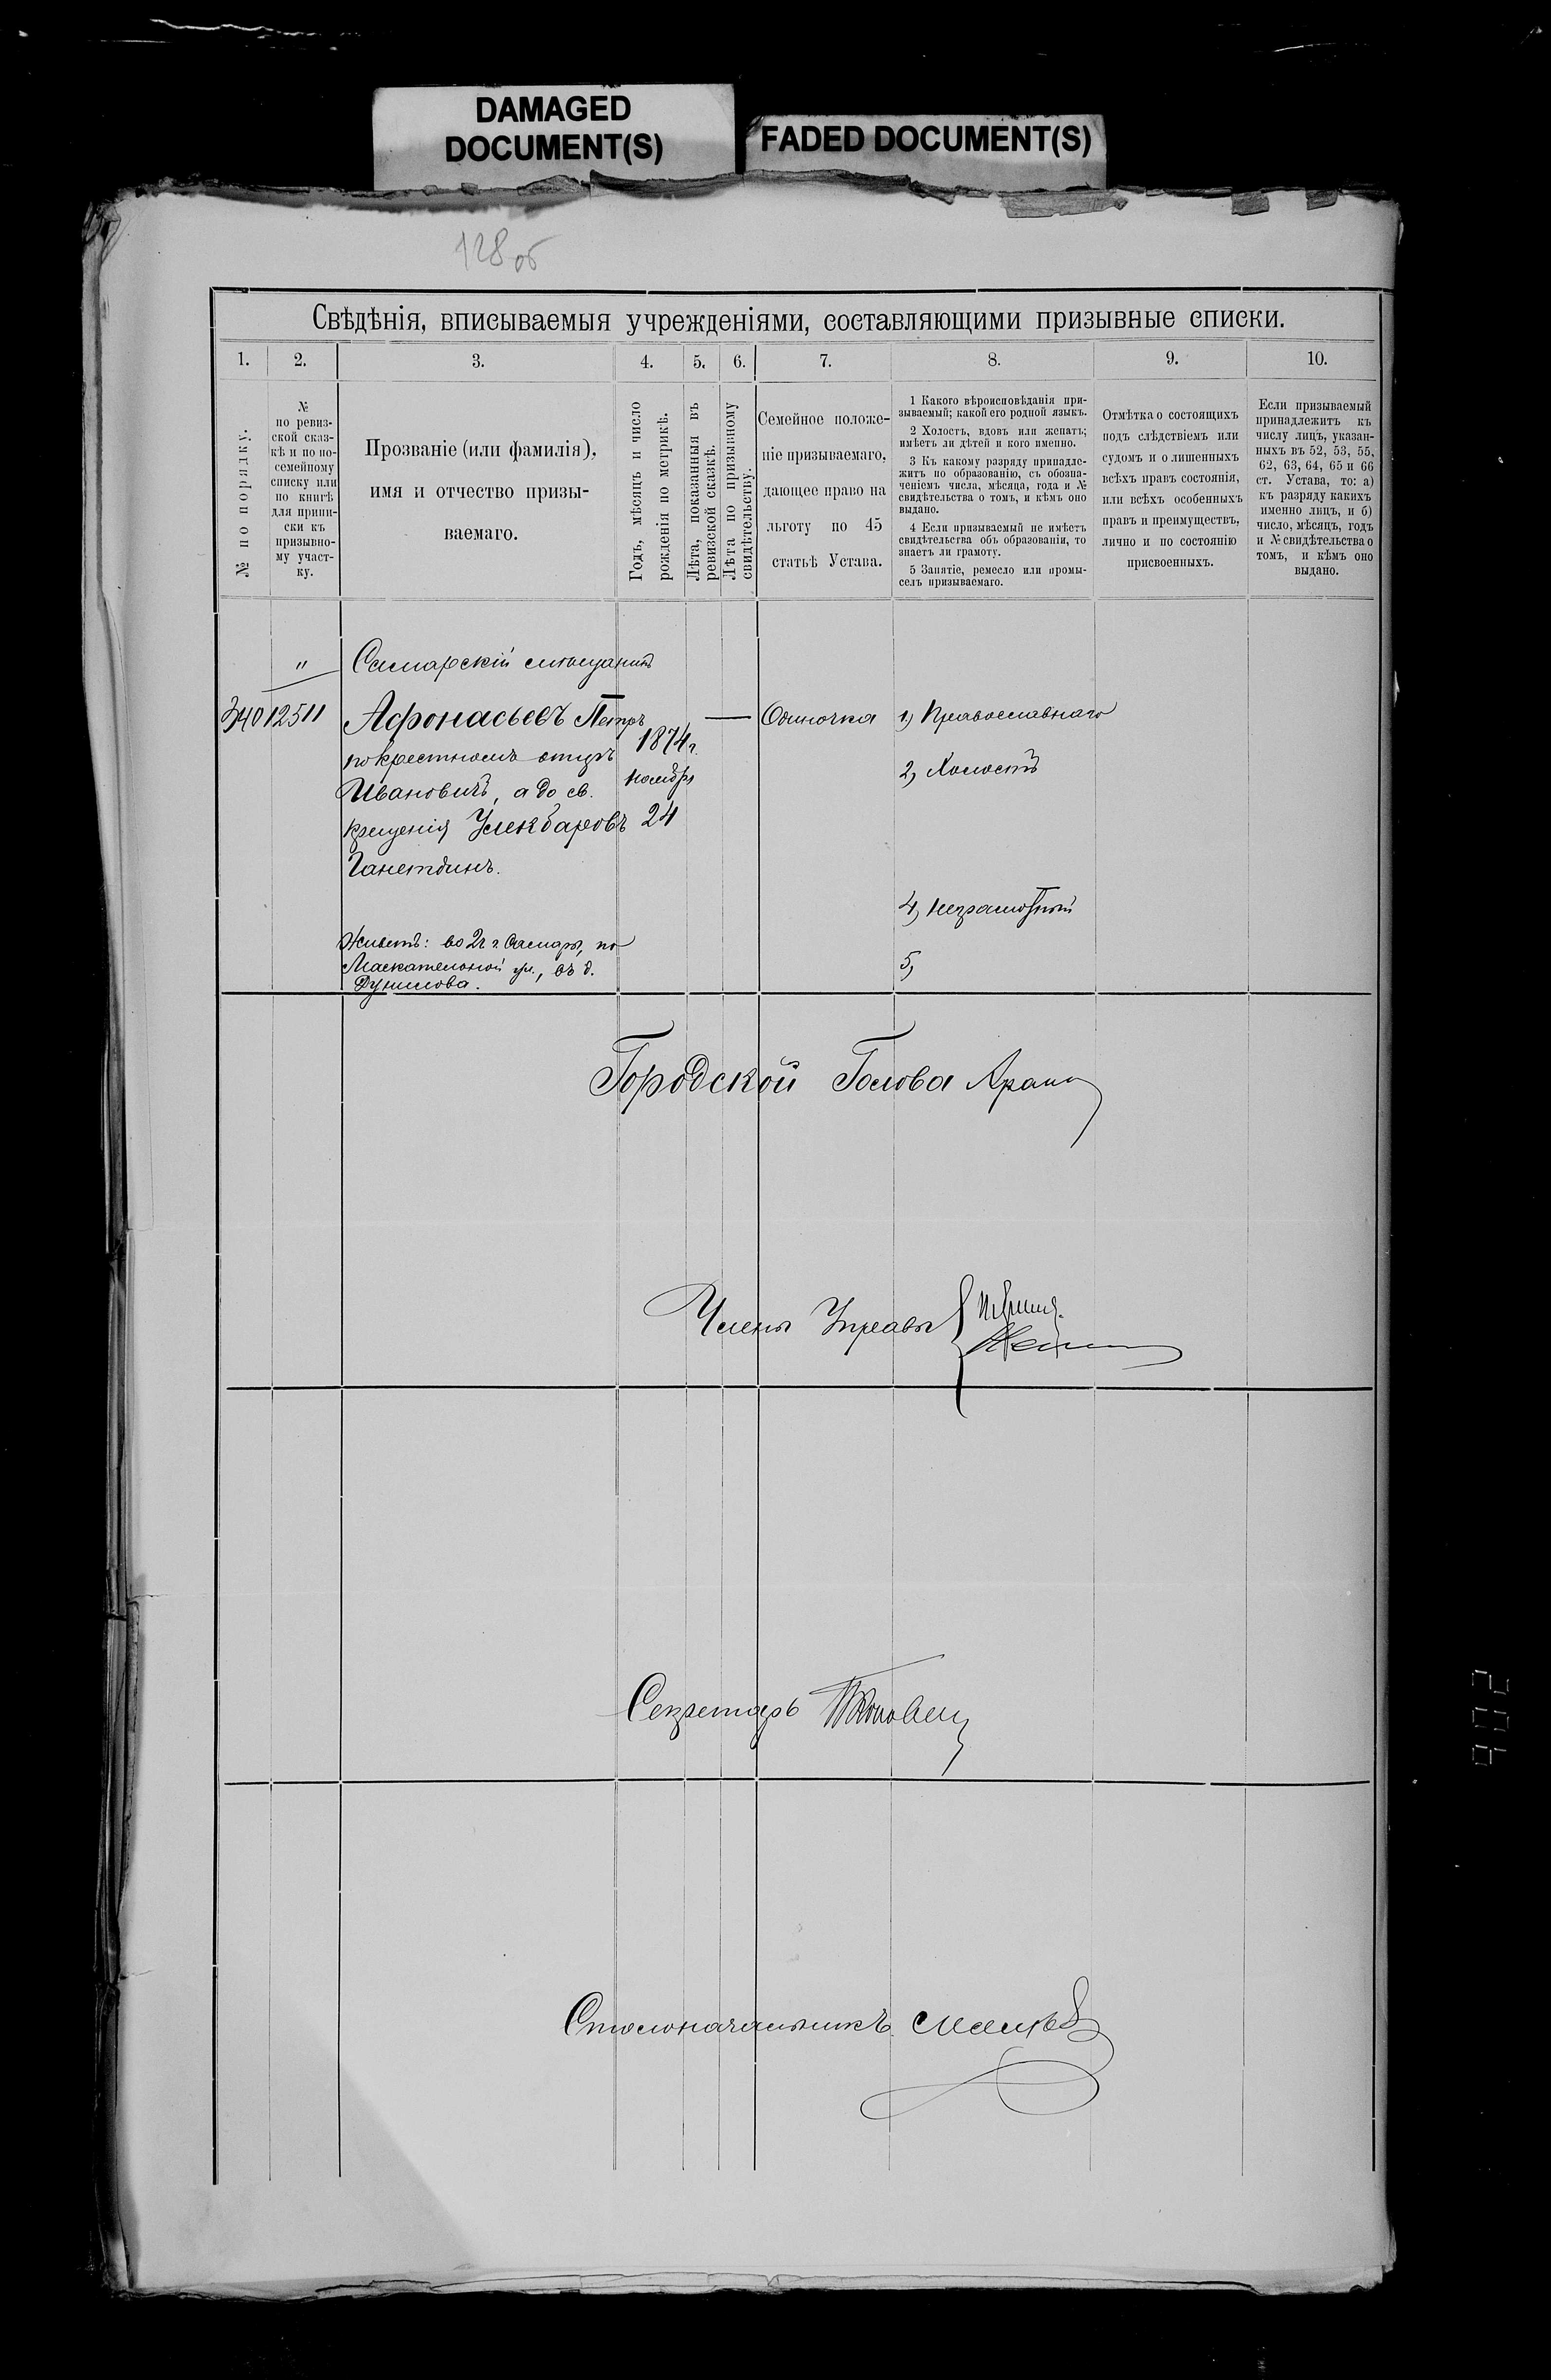 DAMAGED
DOCUMENT(S)
FADED DOCUMENT(S)
128об
Свѣдѣнія, вписываемыя учрежденіями, составляющими призывные списки.
1. 2. 3. 4. 5. 6. 7. 8. 9. 10.
№ по порядку.
№
по ревиз-
ской сказ-
кѣ и по по-
семейному
списку или
по книгѣ
для припи-
ски къ
призывно-
му участ-
ку.
Прозваніе (или фамилія),
имя и отчество призы-
ваемаго.
Годъ, мѣсяцъ и число
рожденія по метрикѣ.
Лѣта, показанныя въ
ревизской сказкѣ.
Лѣта по призывному
свидѣтельству.
Семейное положе-
ніе призываемаго,
дающее право на
льготу по 45
статьѣ Устава.
1 Какого вѣроисповѣданія при-
зываемый; какой его родной языкъ.
2 Холостъ, вдовъ или женатъ;
имѣетъ ли дѣтей и кого именно.
3 Къ какому разряду принадле-
житъ по образованію, съ обозна-
ченіемъ числа, мѣсяца, года и №
свидѣтельства о томъ, и кѣмъ оно
выдано.
4 Если призываемый не имѣетъ
свидѣтельства объ образованіи, то
знаетъ ли грамоту.
5 Занятіе, ремесло или промы-
селъ призываемаго.
Отмѣтка о состоящихъ
подъ слѣдствіемъ или
судомъ и о лишенныхъ
всѣхъ правъ состоянія,
или всѣхъ особенныхъ
правъ и преимуществъ,
лично и по состоянію
присвоенныхъ.
Если призываемый
принадлежитъ къ
числу лицъ, указан-
ныхъ въ 52, 53, 55,
62, 63, 64, 65 и 66
ст. Устава, то: а)
къ разряду какихъ
именно лицъ, и б)
число, мѣсяцъ, годъ
и № свидѣтельства о
томъ, и кѣмъ оно
выдано.
" Самарскій мѣщанинъ
340 12511 Афонасьевъ Петръ — Одиночка 1) Православнаго
по крестномъ отцѣ 1874 г.
Ивановичъ, а до св. ноября 2) Холостъ
крещенія Умекбаровъ 24
Ганетдинъ.
4) неграмотный
Живетъ: во 2 ч. г. Самары, по
Маскательной ул., въ д. 5)
Дунилова.
Городской Голова
Члены Управы
Секретарь
Столоначальникъ
902